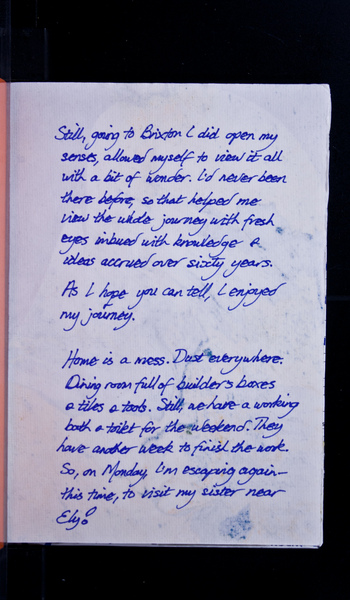 Still, going to Brixton I did open my
senses, allowed myself to view it all
with a bit of wonder. I'd never been
there before, so that helped me
view the whole journey with fresh
eyes imbued with knowledge &
ideas accrued over sixty years.
As I hope you can tell, I enjoyed
my journey.
Home is a mess. Dust everywhere.
Dining room full of builders boxes
& tiles & tools. Still, we have a working
bath & toilet for the weekend. They
have another week to finish the work.
So, on Monday, I'm escaping again—
this time, to visit my sister near
Ely!